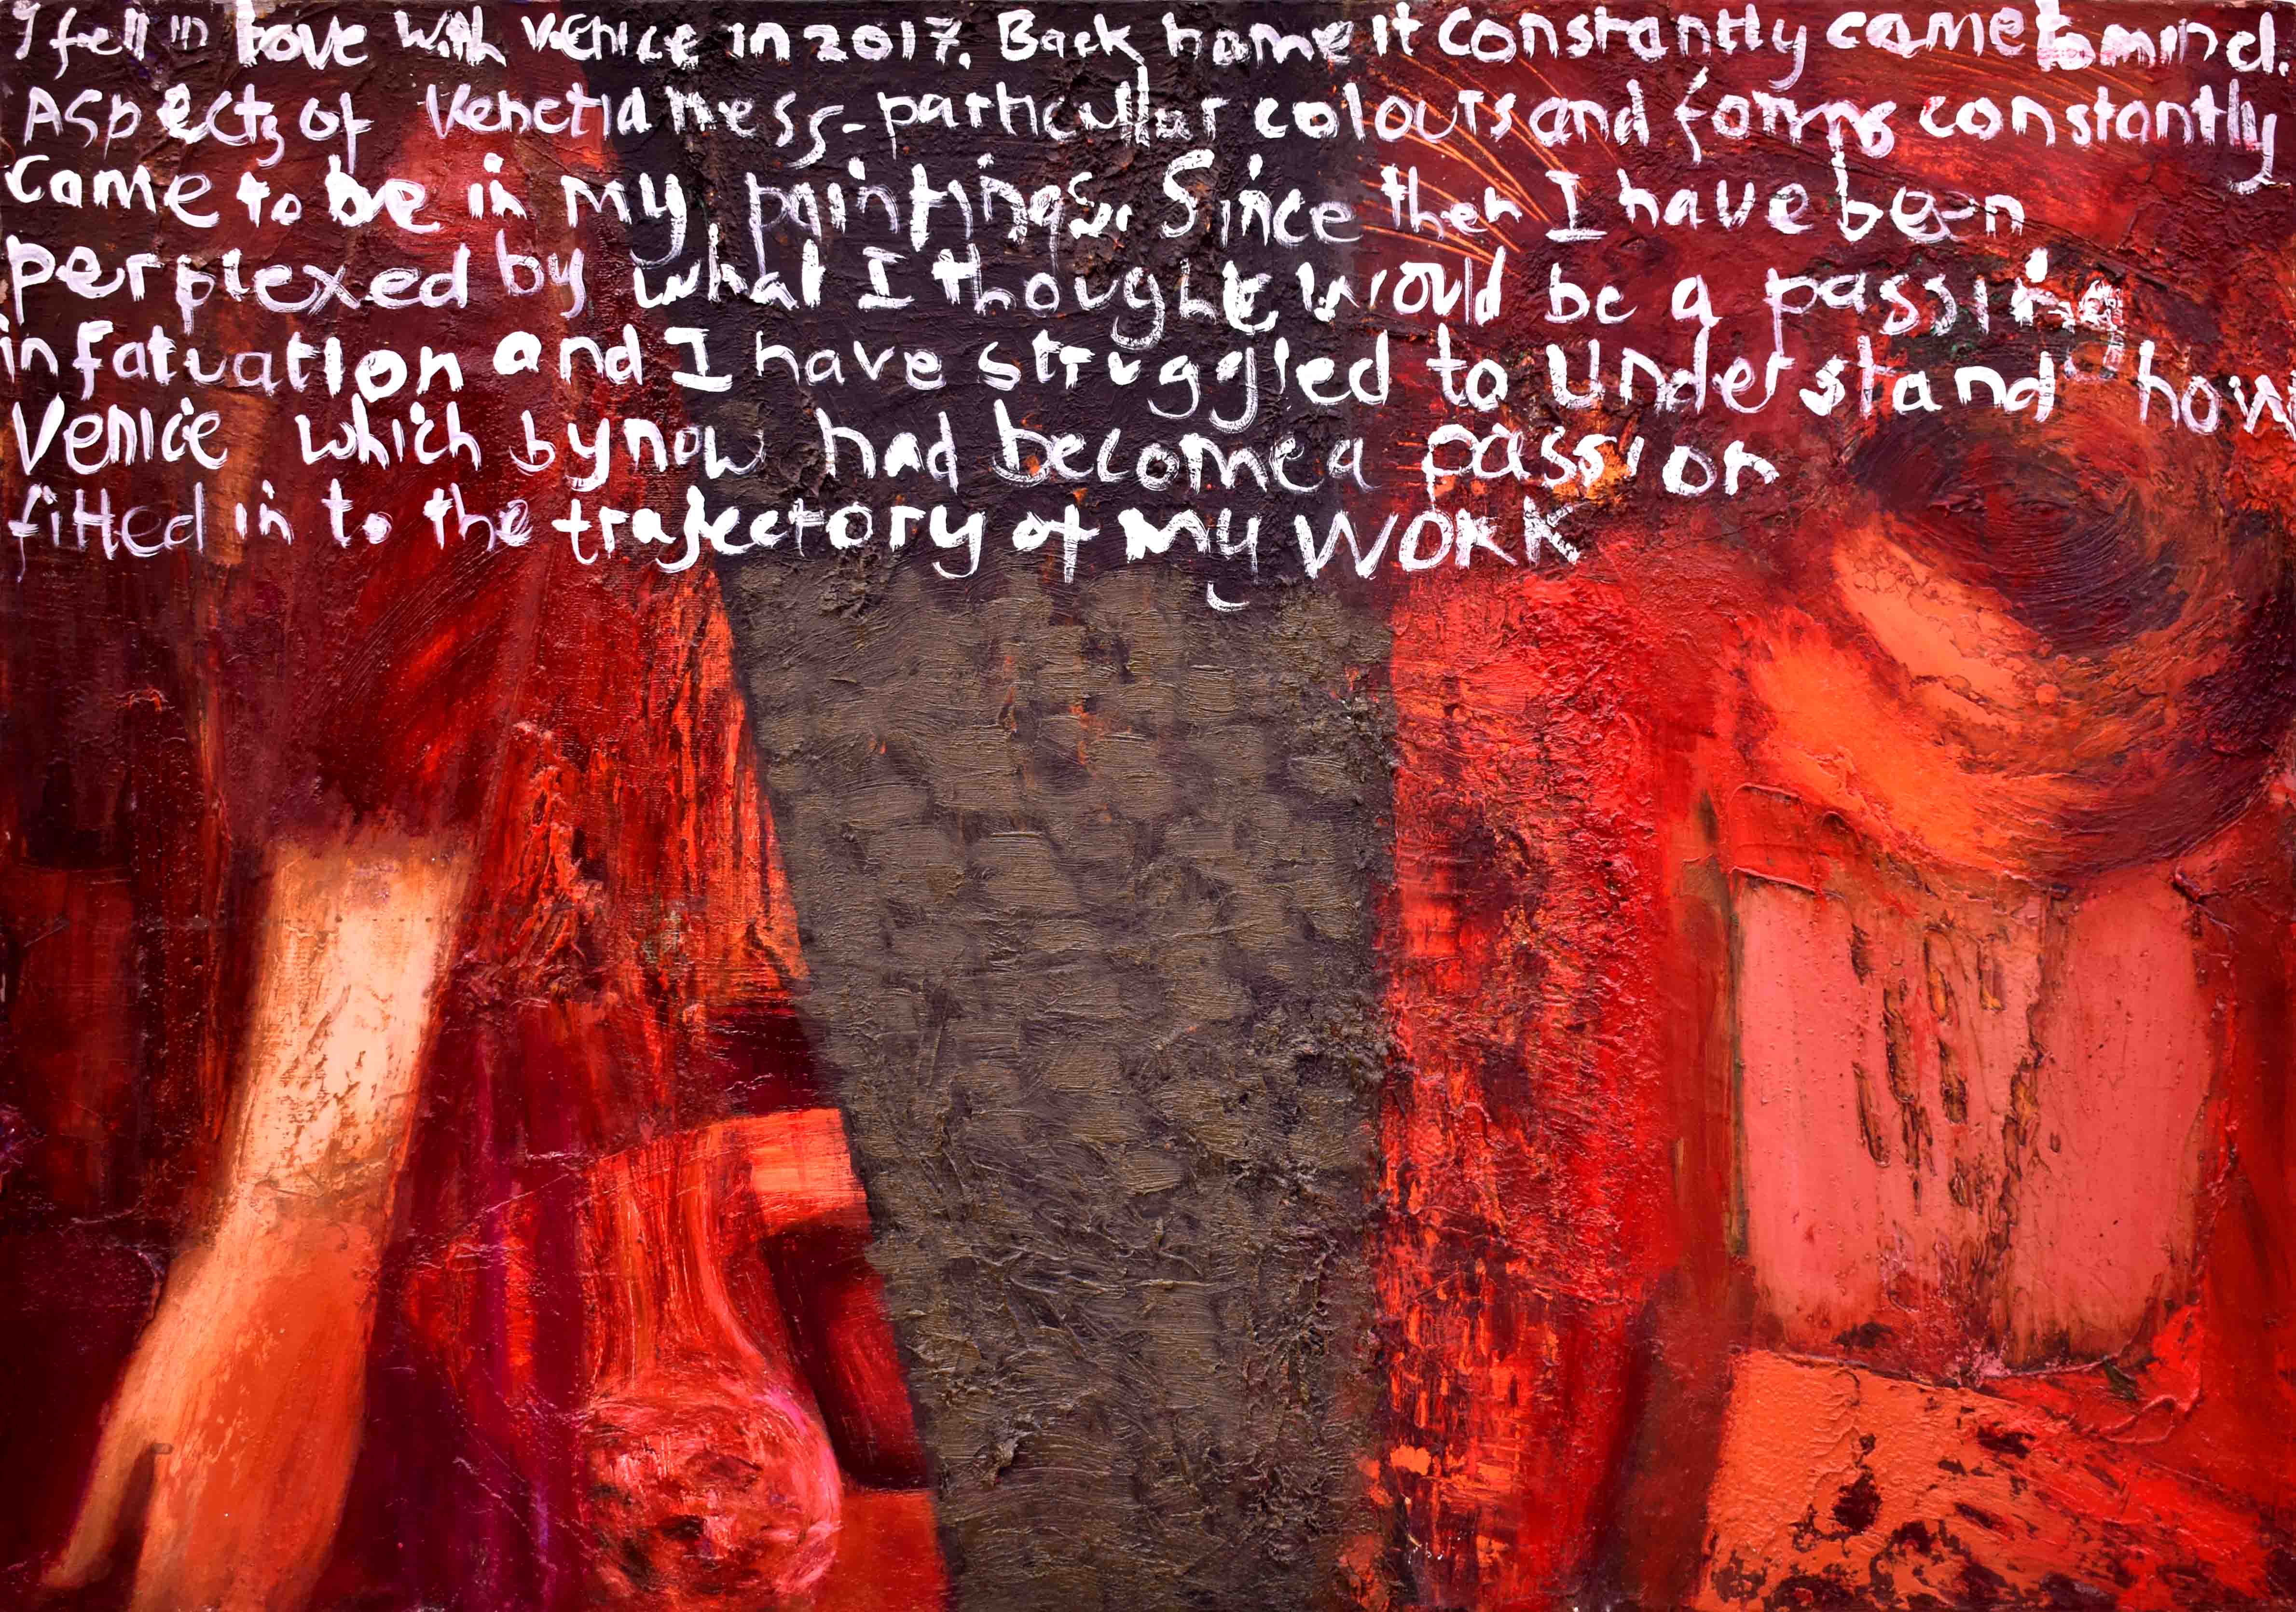 I fell in love with Venice in 2017. Back home it constantly came to mind.
Aspects of Venetianness - particular colours and forms constantly
came to be in my paintings. Since then I have been
perplexed by what I thought would be a passing
infatuation and I have struggled to understand how
Venice which by now had become a passion
fitted in to the trajectory of my work